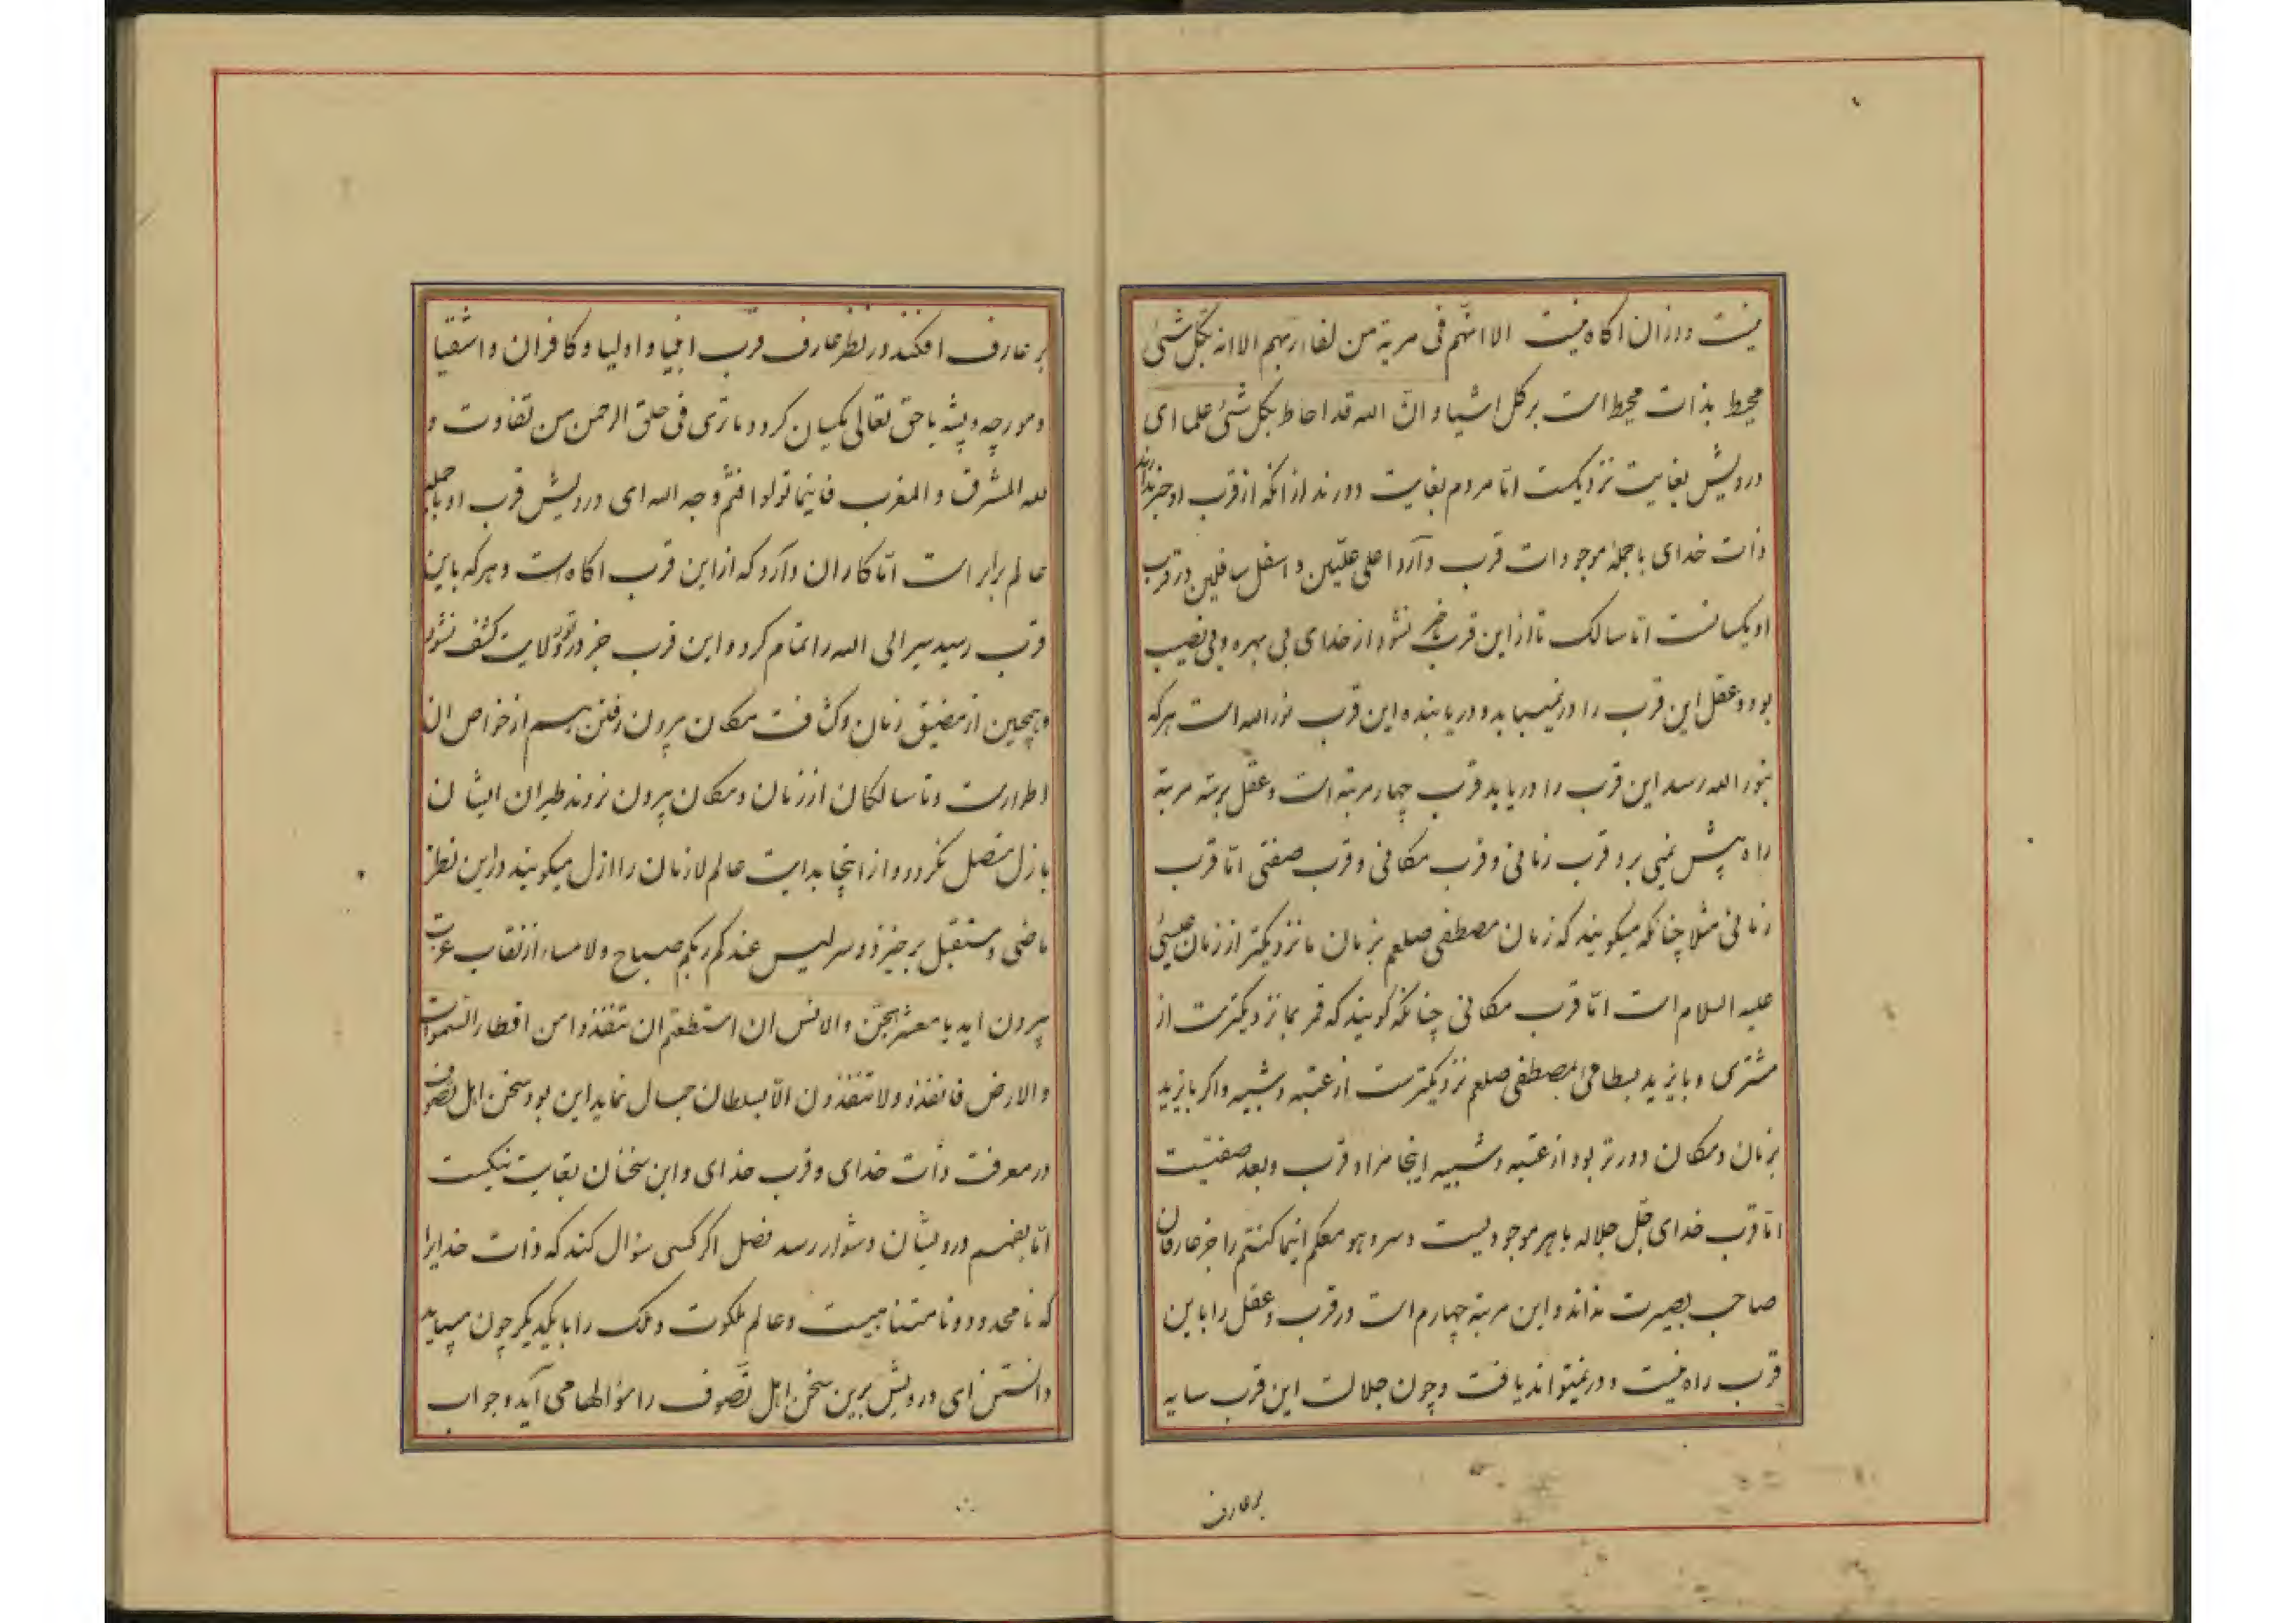 نیست و از ان اکاه نیست الا انهم فی مریة من لقاء ربهم الا انه بکل شئ
محیط بذات محیط است بر کل اشیا و انّ الله قد احاط بکل شئ علما ای
درویش بغایت نزدیکست امّا مردم بغایت دورند از انکه از قرب او خبر ندارند
ذات خدای با جملهٔ موجودات قرب دارد اعلی علیّین و اسفل سافلین در قرب
او یکسانست امّا سالک تا از این قرب باخبر نشود از خدای بی بهره و بی نصیب
بود و عقل این قرب را درنمییابد و دریابنده این قرب نور الله است هرکه
بنور الله رسد این قرب را دریابد قرب چهار مرتبه است و عقل بر سه مرتبه
راه پیش نمی برد قرب زمانی و قرب مکانی و قرب صفتی امّا قرب
زمانی مثلا چنانکه میکویند که زمان مصطفی صلعم بزمان ما نزدیکتر از زمان عیسی
علیه السلام است امّا قرب مکانی چنانکه کویند که قمر بما نزدیکترست از
مشتری و بایزید بسطامی بمصطفی صلعم نزدیکترست از عتبه و شیبه و اکر بایزید
بزمان و مکان دورتر بود از عتبه و شیبه اینجا مراد قرب و بعد صفتیست
امّا قرب خدای جلّ جلاله با هر موجودیست و سر و هو معکم اینما کنتم را جز عارفان
صاحب بصیرت نداند و این مرتبه چهارم است در قرب و عقل را باین
قرب راه نیست و درنمیتواند یافت و چون جلالت این قرب سایه
بر عارف
بر عارف افکند در نظر عارف قرب انبیا و اولیا و کافران و اشقیا
و مورچه و پشه با حق تعالی یکسان کردد ما تری فی خلق الرحمن من تفاوت و
لله المشرق و المغرب فاینما تولوا فثم وجه الله ای درویش قرب او با جمله
عالم برابر است امّا کار ان دارد که از این قرب اکاه است و هرکه باین
قرب رسید سیر الی الله را تمام کرد و این قرب جز در نور ولایت کشف نشود
و همچنین از مضیق زمان و کثافت مکان بیرون رفتن هم از خواص ان
اطوارست و تا سالکان از زمان و مکان بیرون نروند طیران ایشان
بازل متصل نکردد و از اینجا بدایت عالم لازمان را ازل میکویند در این نظر
ماضی و مستقبل برخیزد و سر لیس عند ربکم صباح و لا مساء از نقاب عزت
بیرون اید یا معشر الجن و الانس ان استطعتم ان تنفذوا من اقطار السموات
و الارض فانفذوا لا تنفذون الّا بسلطان جمال نماید این بود سخن اهل تصوف
در معرفت ذات خدای و قرب خدای و این سخنان بغایت نیکست
امّا بفهم درویشان دشوار رسد فصل اکر کسی سؤال کند که ذات خدایرا
که نامحدود و نامتناهیست و عالم ملکوت و ملک را با یکدیکر چون میباید
دانستن ای درویش برین سخن اهل تصوف را سؤالها می آید و جواب